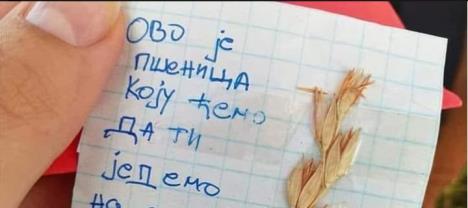 ОВО је
пшеница
Коју ћемо
ДА ТИ
јеДемо
на